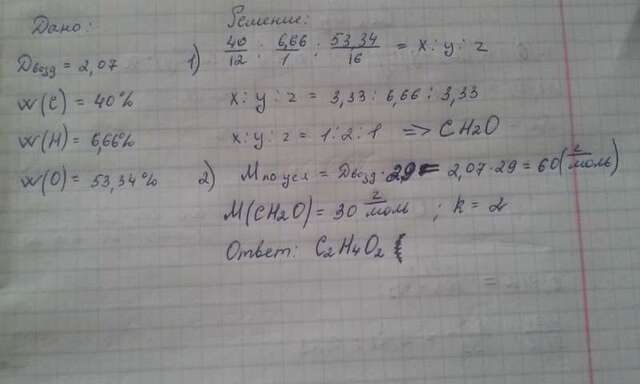 Дано:
Dвозд = 2,07
w(C) = 40%
w(H) = 6,66%
w(O) = 53,34%
Решение:
1) 40/12 : 6,66/1 : 53,34/16 = x : y : z
x : y : z = 3,33 : 6,66 : 3,33
x : y : z = 1 : 2 : 1 => CH2O
2) M = Dвозд · 29 = 2,07 · 29 = 60 (г/моль)
M(CH2O) = 30 г/моль ; k = 2
Ответ: C2H4O2